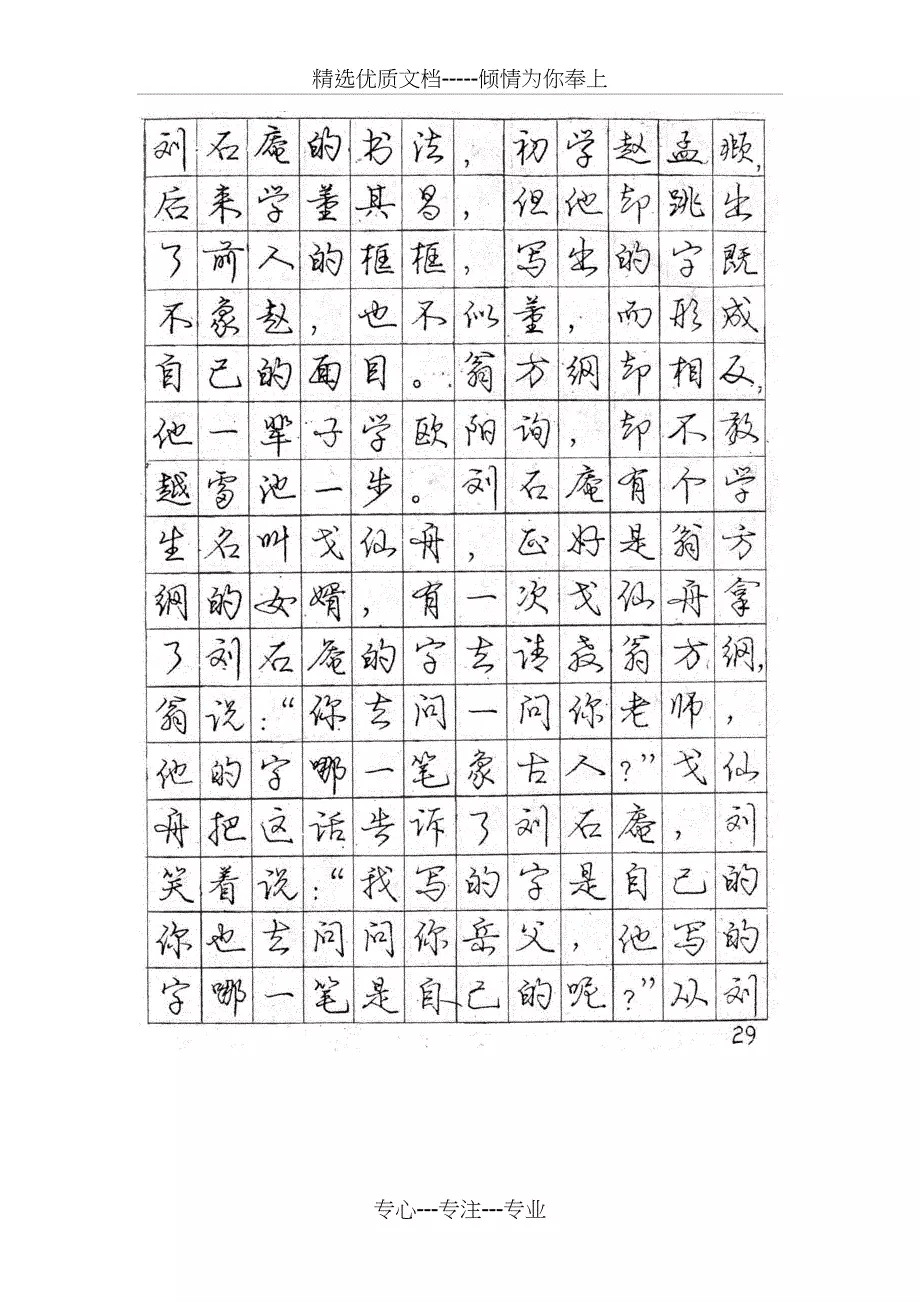 精选优质文档-----倾情为你奉上
刘石庵的书法，初学赵孟頫，
后来学董其昌，但他却跳出
了前人的框框，写出的字既
不象赵，也不似董，而形成
自己的面目。翁方纲却相反，
他一辈子学欧阳询，却不敢
越雷池一步。刘石庵有个学
生名叫戈仙舟，正好是翁方
纲的女婿，有一次戈仙舟拿
了刘石庵的字去请教翁方纲，
翁说：“你去问一问你老师，
他的字哪一笔象古人？”戈仙
舟把这话告诉了刘石庵，刘
笑着说：“我写的字是自己的
你也去问问你岳父，他写的
字哪一笔是自己的呢？”从刘
29
专心---专注---专业